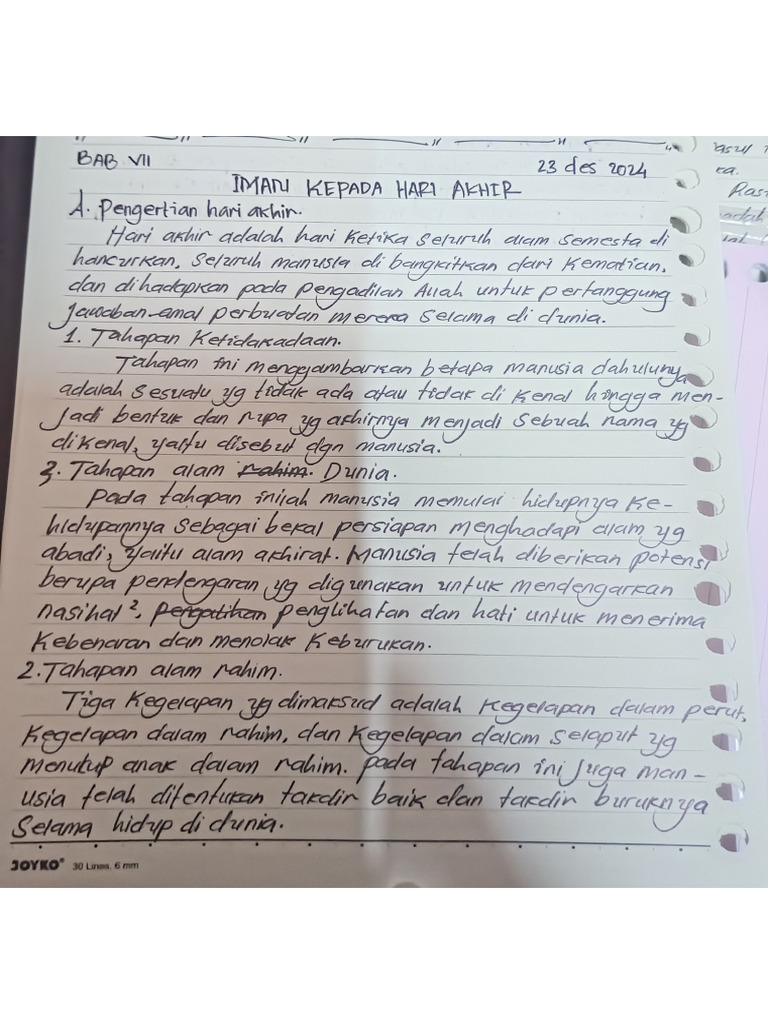 BAB VII
23 des 2024
IMAN KEPADA HARI AKHIR
A. Pengertian hari akhir.
Hari akhir adalah hari ketika seluruh alam semesta di
hancurkan, seluruh manusia di bangkitkan dari kematian,
dan dihadapkan pada pengadilan Allah untuk pertanggung
jawaban amal perbuatan mereka selama di dunia.
1. Tahapan Ketidakadaan.
Tahapan ini menggambarkan betapa manusia dahulunya
adalah sesuatu yg tidak ada atau tidak di kenal hingga men-
jadi bentuk dan rupa yg akhirnya menjadi sebuah nama yg
dikenal, yaitu disebut dgn manusia.
3. Tahapan alam rahim. Dunia.
Pada tahapan inilah manusia memulai hidupnya ke-
hidupannya sebagai bekal persiapan menghadapi alam yg
abadi, yaitu alam akhirat. Manusia telah diberikan potensi
berupa pendengaran yg digunakan untuk mendengarkan
nasihat², penglihatan dan hati untuk menerima
kebenaran dan menolak keburukan.
2. Tahapan alam rahim.
Tiga kegelapan yg dimaksud adalah kegelapan dalam perut,
kegelapan dalam rahim, dan kegelapan dalam selaput yg
menutup anak dalam rahim. pada tahapan ini juga man-
usia telah ditentukan takdir baik dan takdir buruknya
selama hidup di dunia.
JOYKO® 30 Lines, 6 mm